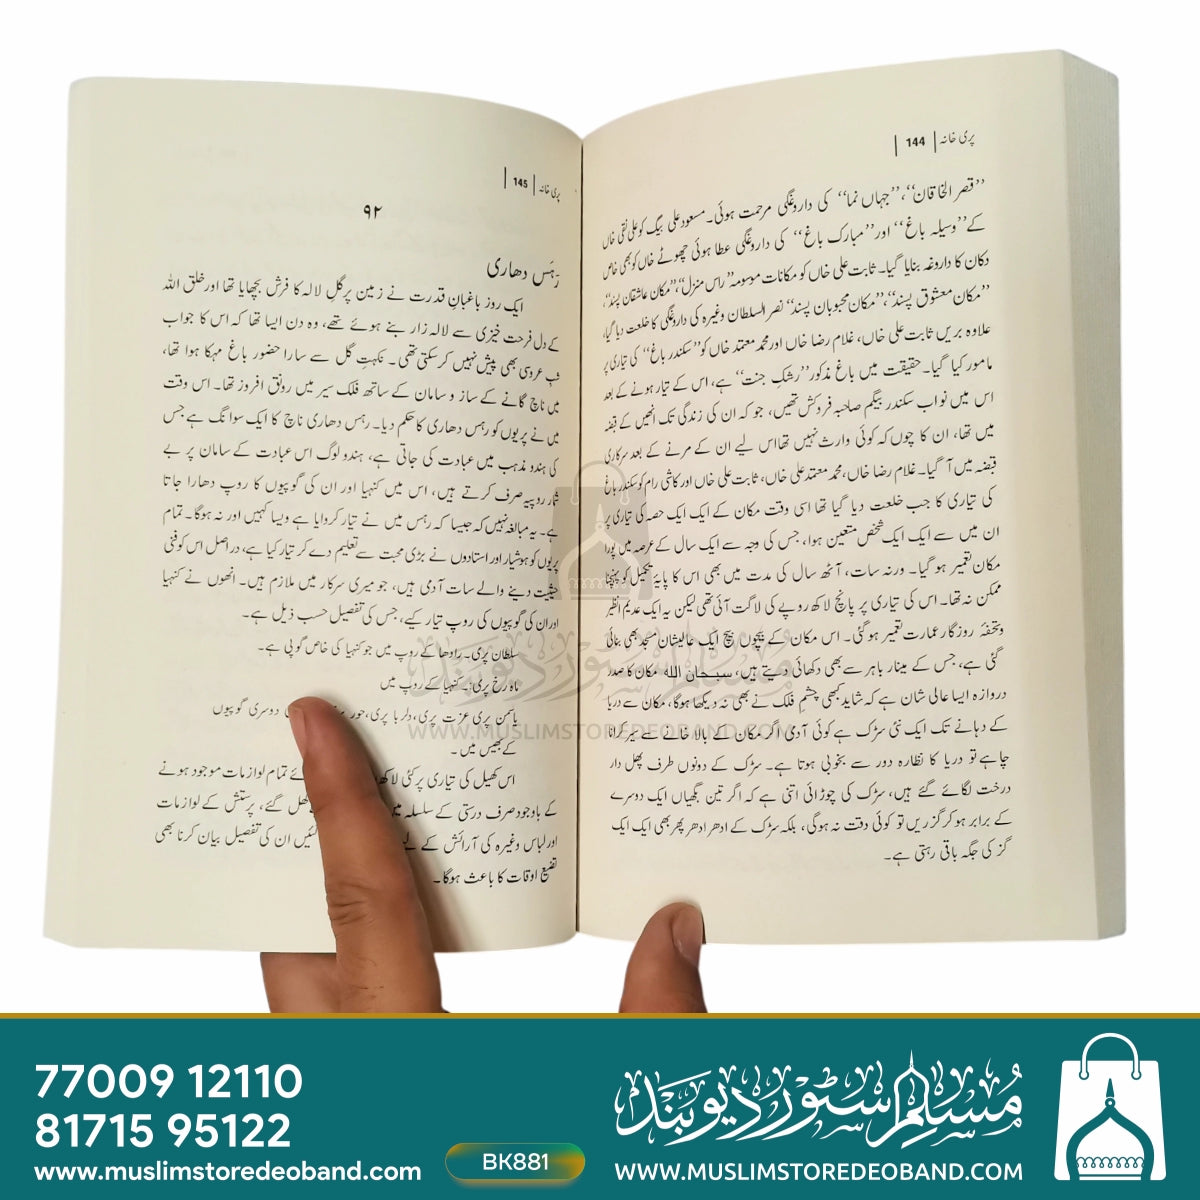 پری خانہ | 144 |
’’قصر الخاقان‘‘، ’’جہاں نما‘‘ کی داروغگی مرحمت ہوئی۔ مسعود علی بیگ کو علی نقی خاں
کے ’’وسیلہ باغ‘‘ اور ’’مبارک باغ‘‘ کی داروغگی عطا ہوئی چھوٹے خاں کو بھی خاص
دکان کا داروغہ بنایا گیا۔ ثابت علی خاں کو مکانات موسومہ ’’راس منزل‘‘، ’’مکان عاشقان پسند‘‘،
’’مکان معشوق پسند‘‘، ’’مکان محبوبان پسند‘‘ نصر السلطان وغیرہ کی داروغگی کا خلعت دیا گیا،
علاوہ بریں ثابت علی خاں، غلام رضا خاں اور محمد معتمد خاں کو ’’سکندر باغ‘‘ کی تیاری پر
مامور کیا گیا۔ حقیقت میں باغ مذکور ’’رشکِ جنت‘‘ ہے، اس کے تیار ہونے کے بعد
اس میں نواب سکندر بیگم صاحبہ فروکش تھیں، جو کہ ان کی زندگی تک انھیں کے قبضہ
میں تھا، ان کا چوں کہ کوئی وارث نہیں تھا اس لیے ان کے مرنے کے بعد سرکاری
قبضہ میں آ گیا۔ غلام رضا خاں، محمد معتمد علی خاں، ثابت علی خاں اور کاشی رام کو سکندر باغ
کی تیاری کا جب خلعت دیا گیا تھا اسی وقت مکان کے ایک ایک حصہ کی تیاری پر
ان میں سے ایک ایک شخص متعین ہوا، جس کی وجہ سے ایک سال کے عرصہ میں پورا
مکان تعمیر ہو گیا۔ ورنہ سات، آٹھ سال کی مدت میں بھی اس کا پایۂ تکمیل کو پہنچنا
ممکن نہ تھا۔ اس کی تیاری پر پانچ لاکھ روپے کی لاگت آئی تھی لیکن یہ ایک عدیم النظیر
و تحفۂ روزگار عمارت تعمیر ہو گئی۔ اس مکان کے بیچوں بیچ ایک عالیشان مسجد بھی بنائی
گئی ہے، جس کے مینار باہر سے بھی دکھائی دیتے ہیں، سبحان اللہ مکان کا صدر
دروازہ ایسا عالی شان ہے کہ شاید کبھی چشمِ فلک نے بھی نہ دیکھا ہوگا، مکان سے دریا
کے دہانے تک ایک نئی سڑک ہے کوئی آدمی اگر مکان کے بالا خانے سے سیر کرنا
چاہے تو دریا کا نظارہ دور سے بخوبی ہوتا ہے۔ سڑک کے دونوں طرف پھل دار
درخت لگائے گئے ہیں، سڑک کی چوڑائی اتنی ہے کہ اگر تین بگھیاں ایک دوسرے
کے برابر ہو کر گزریں تو کوئی دقت نہ ہوگی، بلکہ سڑک کے ادھر ادھر پھر بھی ایک ایک
گز کی جگہ باقی رہتی ہے۔
پری خانہ | 145 |
۹۲
رہَس دھاری
ایک روز باغبانِ قدرت نے زمین پر گلِ لالہ کا فرش بچھایا تھا اور خلق اللہ
کے دل فرحت خیزی سے لالہ زار بنے ہوئے تھے، وہ دن ایسا تھا کہ اس کا جواب
شبِ عروسی بھی پیش نہیں کر سکتی تھی۔ نکہتِ گل سے سارا حضور باغ مہکا ہوا تھا،
میں ناچ گانے کے ساز و سامان کے ساتھ فلک سیر میں رونق افروز تھا۔ اس وقت
میں نے پریوں کو رہس دھاری کا حکم دیا۔ رہس دھاری ناچ کا ایک سوانگ ہے جس
کی ہندو مذہب میں عبادت کی جاتی ہے، ہندو لوگ اس عبادت کے سامان پر بے
شمار روپیہ صرف کرتے ہیں، اس میں کنہیا اور ان کی گوپیوں کا روپ دھارا جاتا
ہے۔ یہ مبالغہ نہیں کہ جیسا کہ رہس میں نے تیار کروایا ہے ویسا کہیں اور نہ ہوگا۔ تمام
پریوں کو ہوشیار اور استادوں نے بڑی محبت سے تعلیم دے کر تیار کیا ہے، دراصل اس کو فنی
حیثیت دینے والے سات آدمی ہیں، جو میری سرکار میں ملازم ہیں۔ انھوں نے کنہیا
اور ان کی گوپیوں کی روپ تیار کیے، جس کی تفصیل حسب ذیل ہے۔
سلطان پری۔ رادھا کے روپ میں جو کنہیا کی خاص گوپی ہے۔
ماہ رخ پری:۔ کنہیا کے روپ میں
یاسمن پری عزت پری، دلربا پری، حور پری دوسری گوپیوں
کے بھیس میں۔
اس کھیل کی تیاری پر کئی لاکھ ئے تمام لوازمات موجود ہونے
کے باوجود صرف درستی کے سلسلہ میں گھل گئے، پرستش کے لوازمات
اور لباس وغیرہ کی آرائش کے لیے گئیں ان کی تفصیل بیان کرنا بھی
تضیع اوقات کا باعث ہوگا۔
مسلم سٹور دیوبند
WWW.MUSLIMSTOREDEOBAND.COM
77009 12110
81715 95122
www.muslimstoredeoband.com
BK881
مسلم سٹور دیوبند
WWW.MUSLIMSTOREDEOBAND.COM